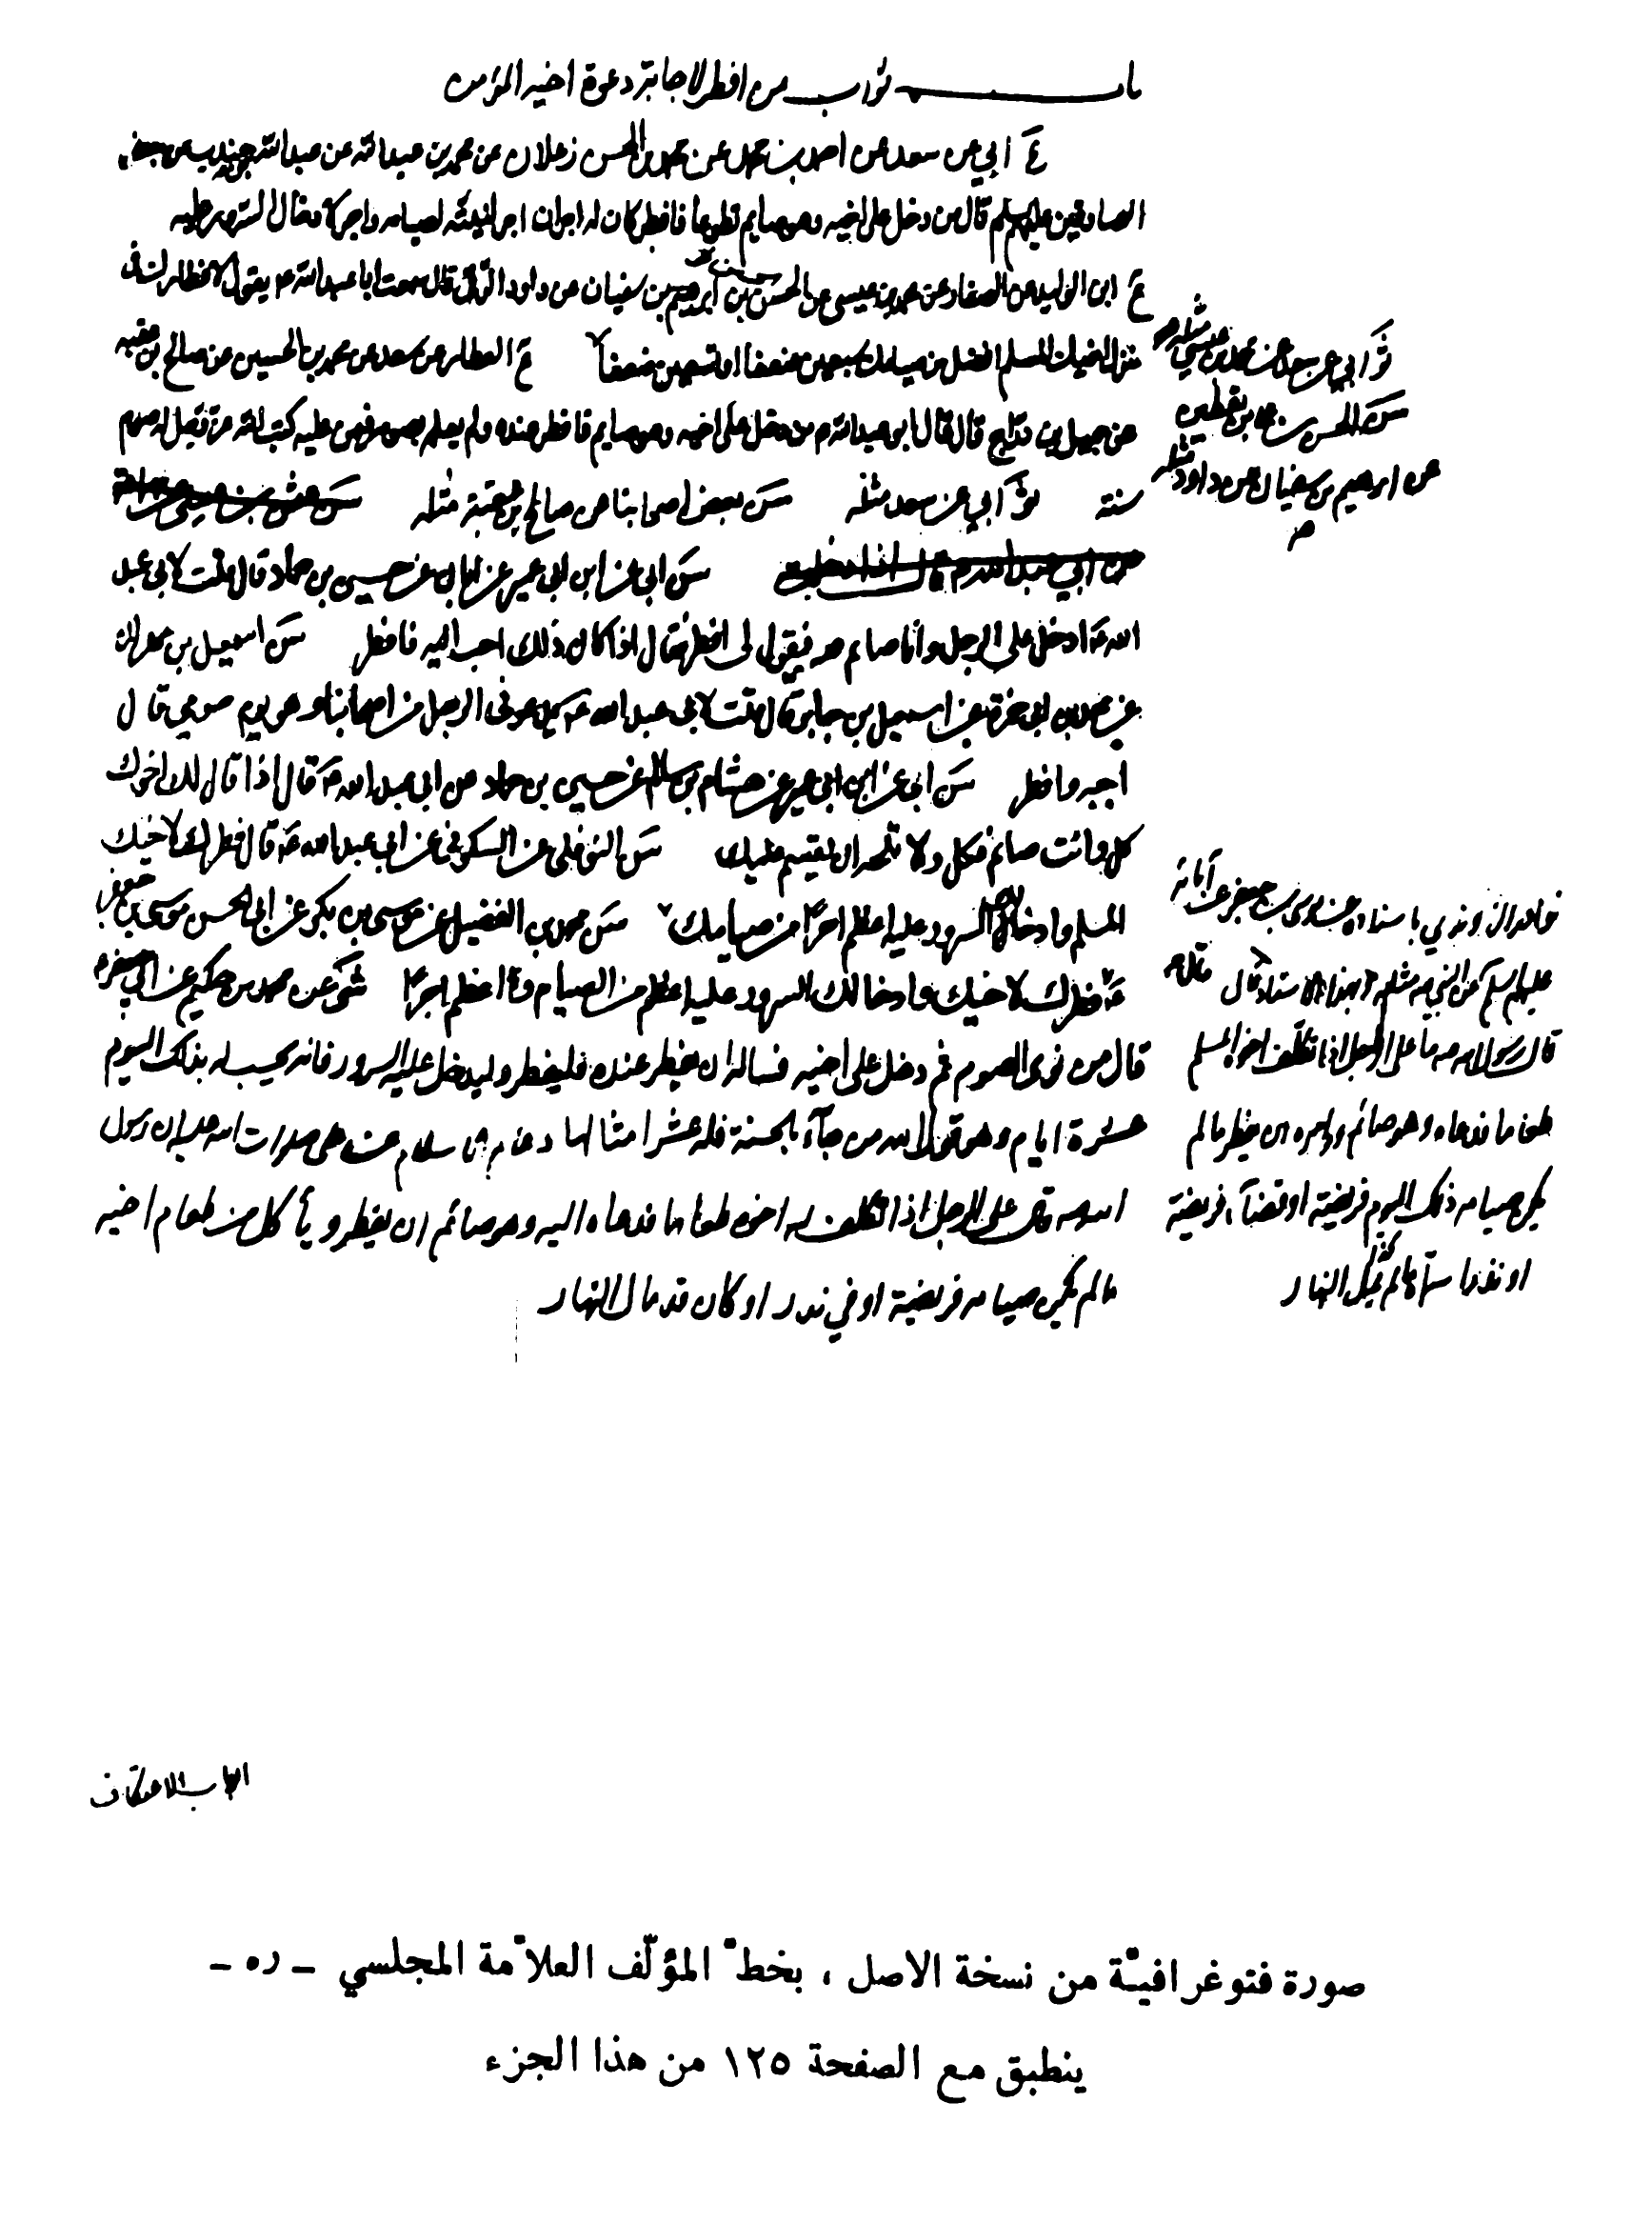 باب ثواب من افطر لاجابة دعوة اخيه المؤمن
ع ابي عن سعد عن احمد بن محمد عن محمد بن الحسن زعلان عن محمد بن عبد الله عن عبد الله جندب عن بعض
الصادقين عليهم السلم قال من دخل على اخيه وهو صايم تطوعا فافطر كان له اجران اجر لنيته لصيامه واجر لادخال السرور عليه
ع ابن الوليد عن الصفار عن محمد بن عيسى عن الحسن بن ابرهيم بن سفيان عن داود الرقى قال سمعت ابا عبد الله ع يقول لافطارك فى
منزل اخيك المسلم افضل من صيامك سبعين ضعفا او تسعين ضعفا ع العطار عن سعد عن محمد بن الحسين عن صالح بن عقبه
عن جميل بن دراج قال قال ابو عبد الله ع من دخل على اخيه وهو صايم فافطر عنده ولم يعلمه بصومه فيمن عليه كتب الله له صوم
سنة ثو ابي عن سعد مثله سن بعض اصحابنا عن صالح بن عقبة مثله
سن ابى عن ابن ابى عمير عن ابان عن حسين بن حماد قال قلت لابى عبد
الله ع ادخل على الرجل وانا صائم فيقول لى افطر فقال اذا كان ذلك احب اليه فافطر سن اسمعيل بن مهران
عن ابى حمزة عن اسمعيل بن جابر قال قلت لابى عبد الله ع يدعونى الرجل من اصحابنا وهو يوم صومي قال
اجبه وافطر سن ابى عن ابن ابى عمير عن هشام بن سالم عن حسين بن حماد عن ابى عبد الله ع قال اذا قال لك اخوك
كل وانت صائم فكل ولا تلجه ان يقسم عليك سن النوفلى عن السكونى عن ابى عبد الله ع قال فطرك لاخيك
المسلم وادخالك السرور عليه اعظم اجرا من صيامك سن محمد بن الفضيل عن موسى بن بكر عن ابى الحسن موسى بن جعفر
ع فطرك لاخيك وادخالك السرور عليه اعظم من الصيام واعظم اجرا شى عن محمد بن حكيم عن ابي جعفر ع
قال من نوى الصوم ثم دخل على اخيه فساله ان يفطر عنده فليفطر وليدخل عليه السرور فانه يحسب له بذلك اليوم
عشرة ايام وهو قول الله من جآء بالحسنة فله عشر امثالها دعائم الاسلام عن على صلوات الله عليه ان رسول
الله ص قال على الرجل اذا تكلف له اخوه طعاما فدعاه اليه وهو صائم ان يفطر ويأكل من طعام اخيه
ما لم يكن صيامه فريضة او في نذر او كان قد مال النهار
ثو ابي عن سعد عن محمد بن عيسى مثله
سن الحسن بن علي بن يقطين
عن ابرهيم بن سفيان عن داود مثله
نوادر الراوندي باسناده عن موسى بن جعفر عن آبائه
عليهم السلم عن النبي ص مثله وبهذا الاسناد قال
قال رسول الله ص ما على الرجل اذا تكلف اخوه المسلم
طعاما فدعاه وهو صائم وامره ان يفطر ما لم
يكن صيامه ذلك اليوم فريضة او قضآء فريضة
او نذرا سماه ما لم يمل النهار
ابواب الاعتكاف
صورة فتوغرافيّة من نسخة الاصل ، بخطّ المؤلّف العلاّمة المجلسي - ره -
ينطبق مع الصفحة ١٢٥ من هذا الجزء